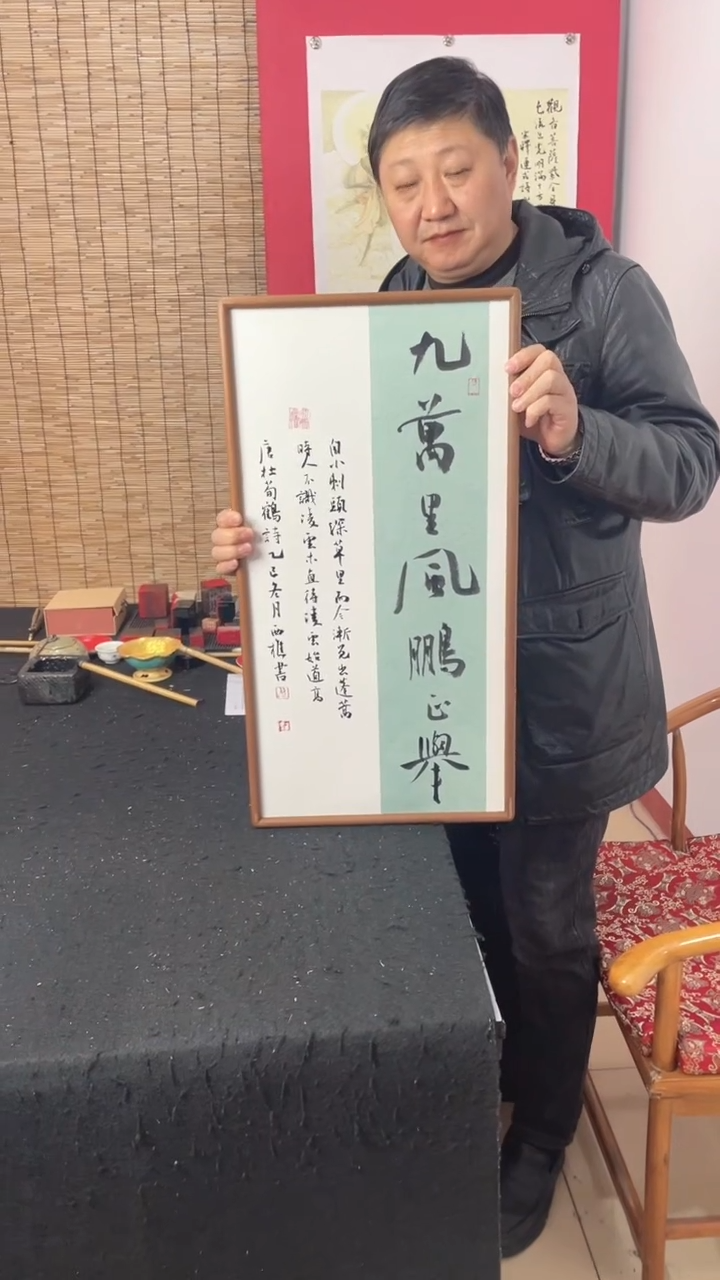 九萬里風鵬正舉
自小刺頭深草里而今漸見出蓬蒿
時人不識凌雲木直待凌雲始道高
唐杜荀鶴詩乙巳冬月西樵書
觀音菩薩